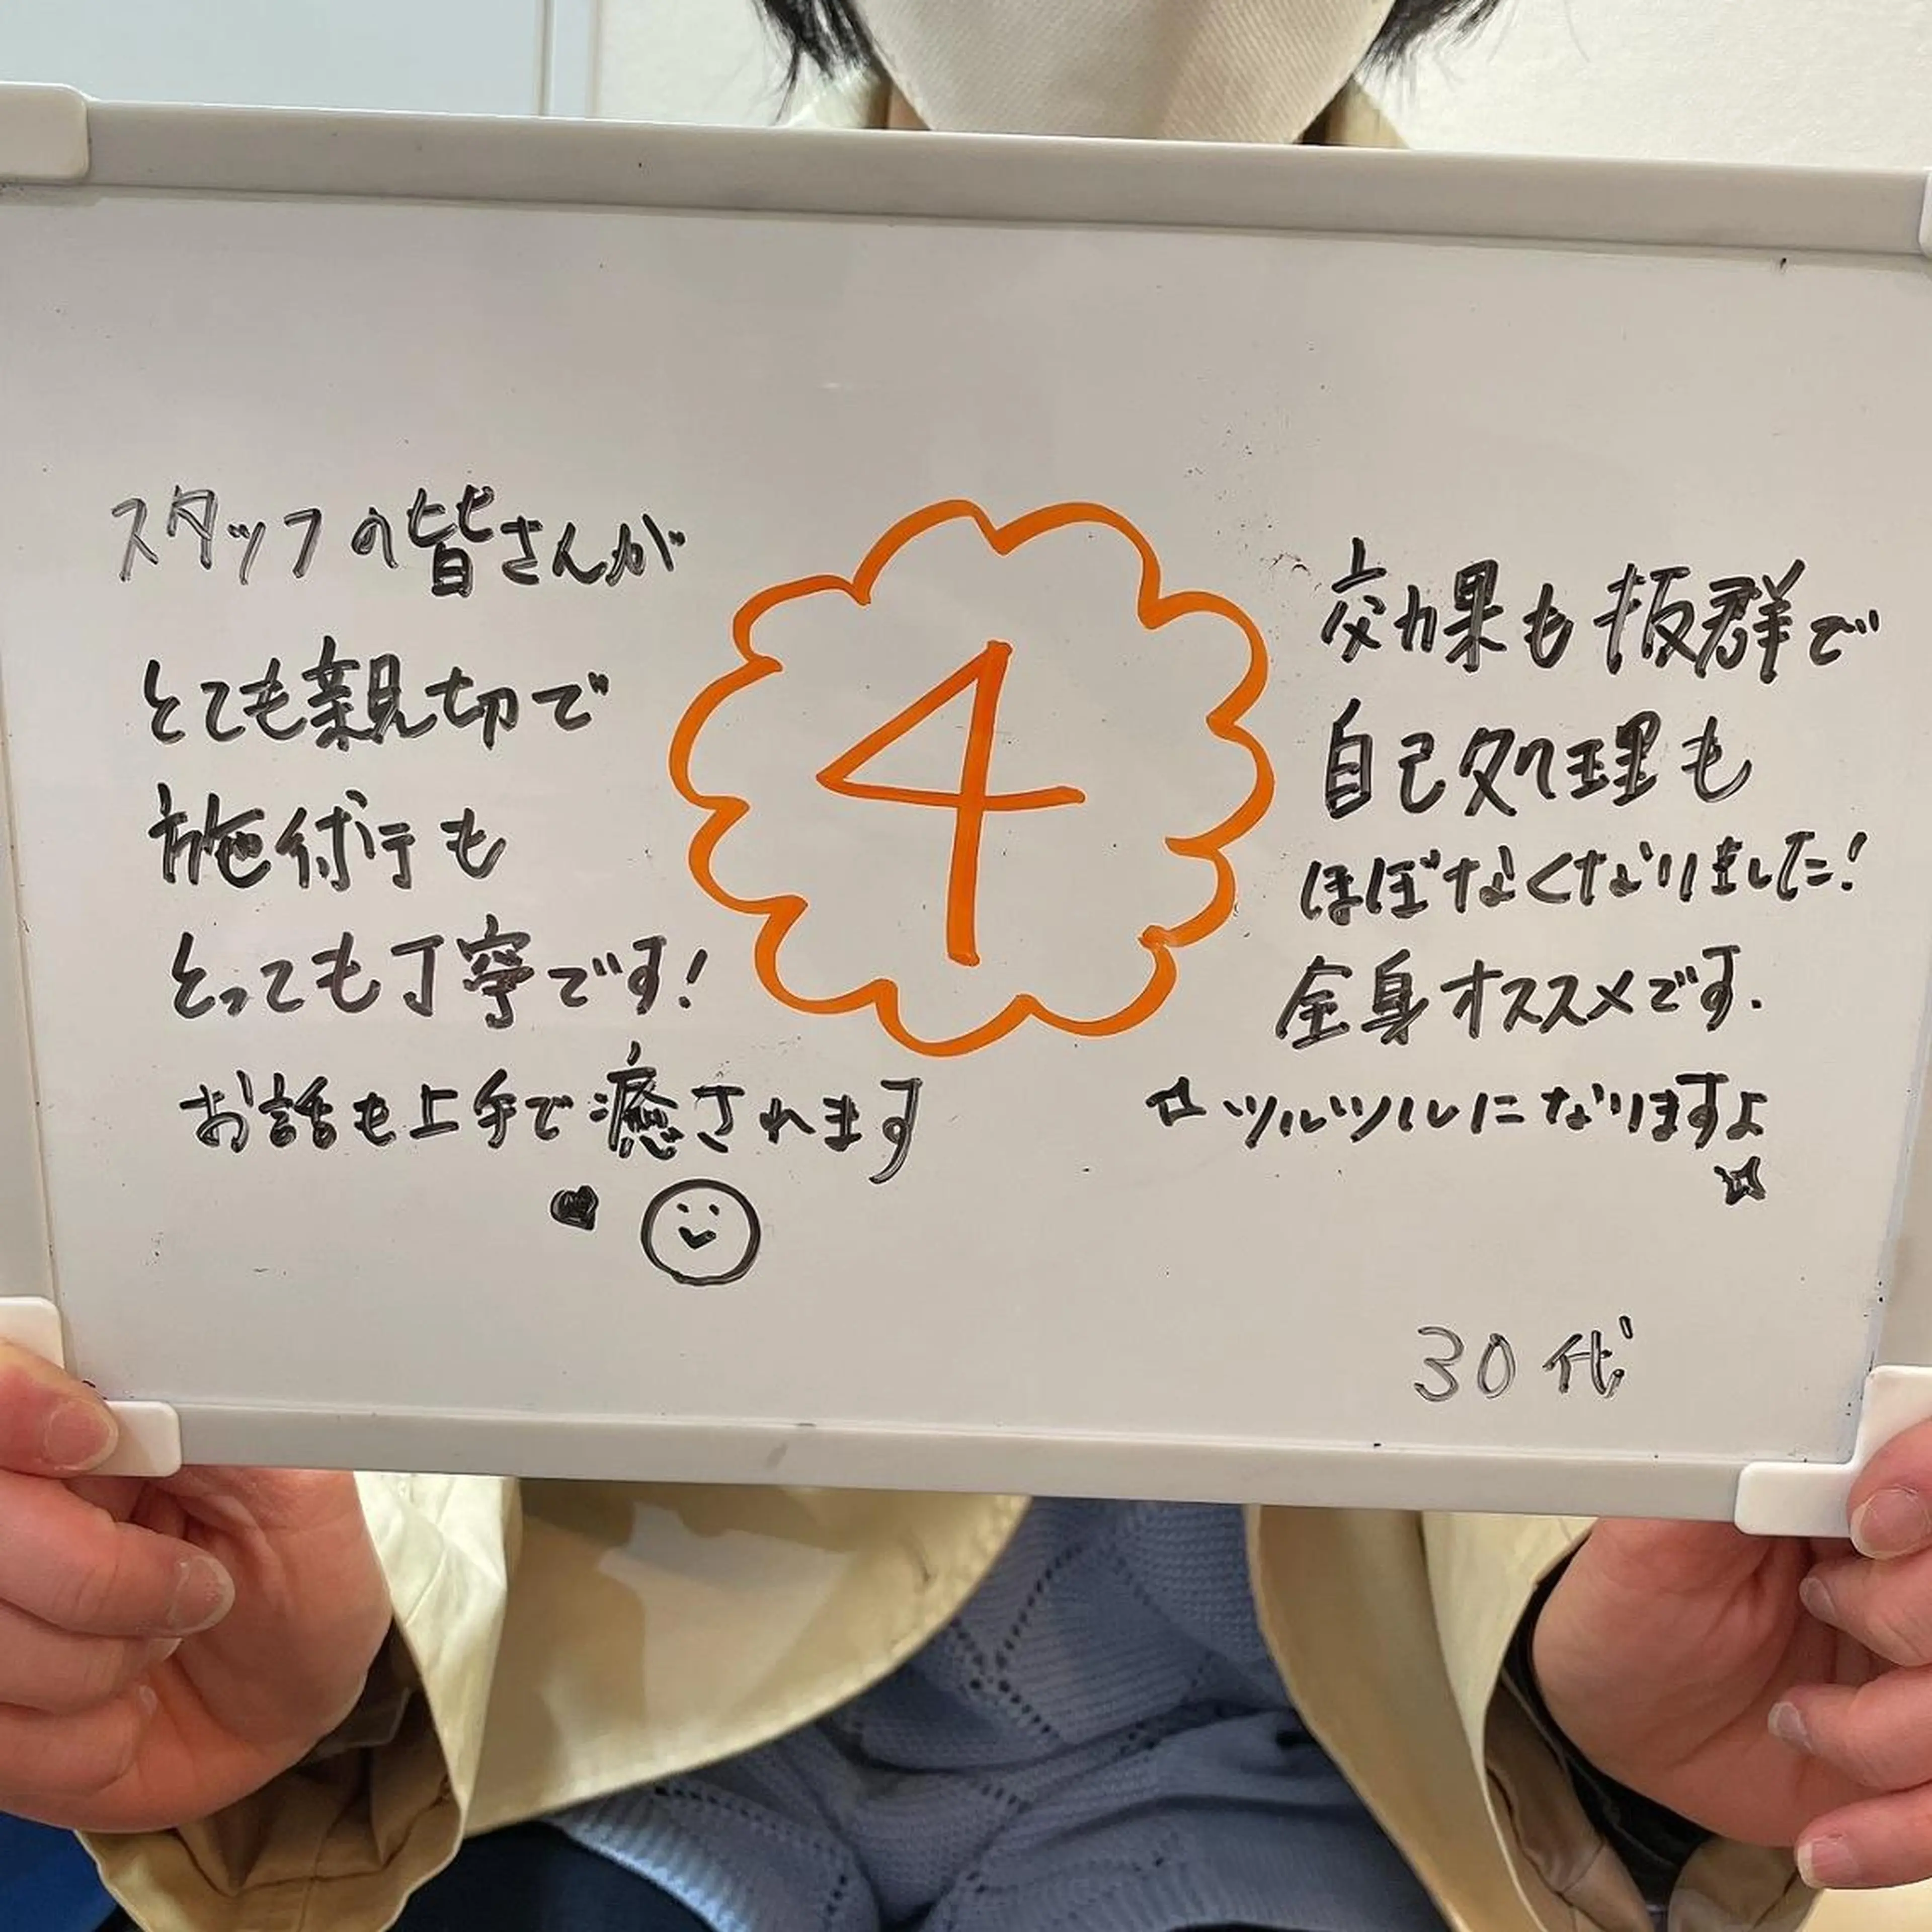 スタッフの皆さんが
とても親切で
施術も
とっても丁寧です!
お話も上手で癒されます
4
効果も抜群で
自己処理も
ほぼなくなりました!
全身オススメです.
ツルツルになりますよ
30代